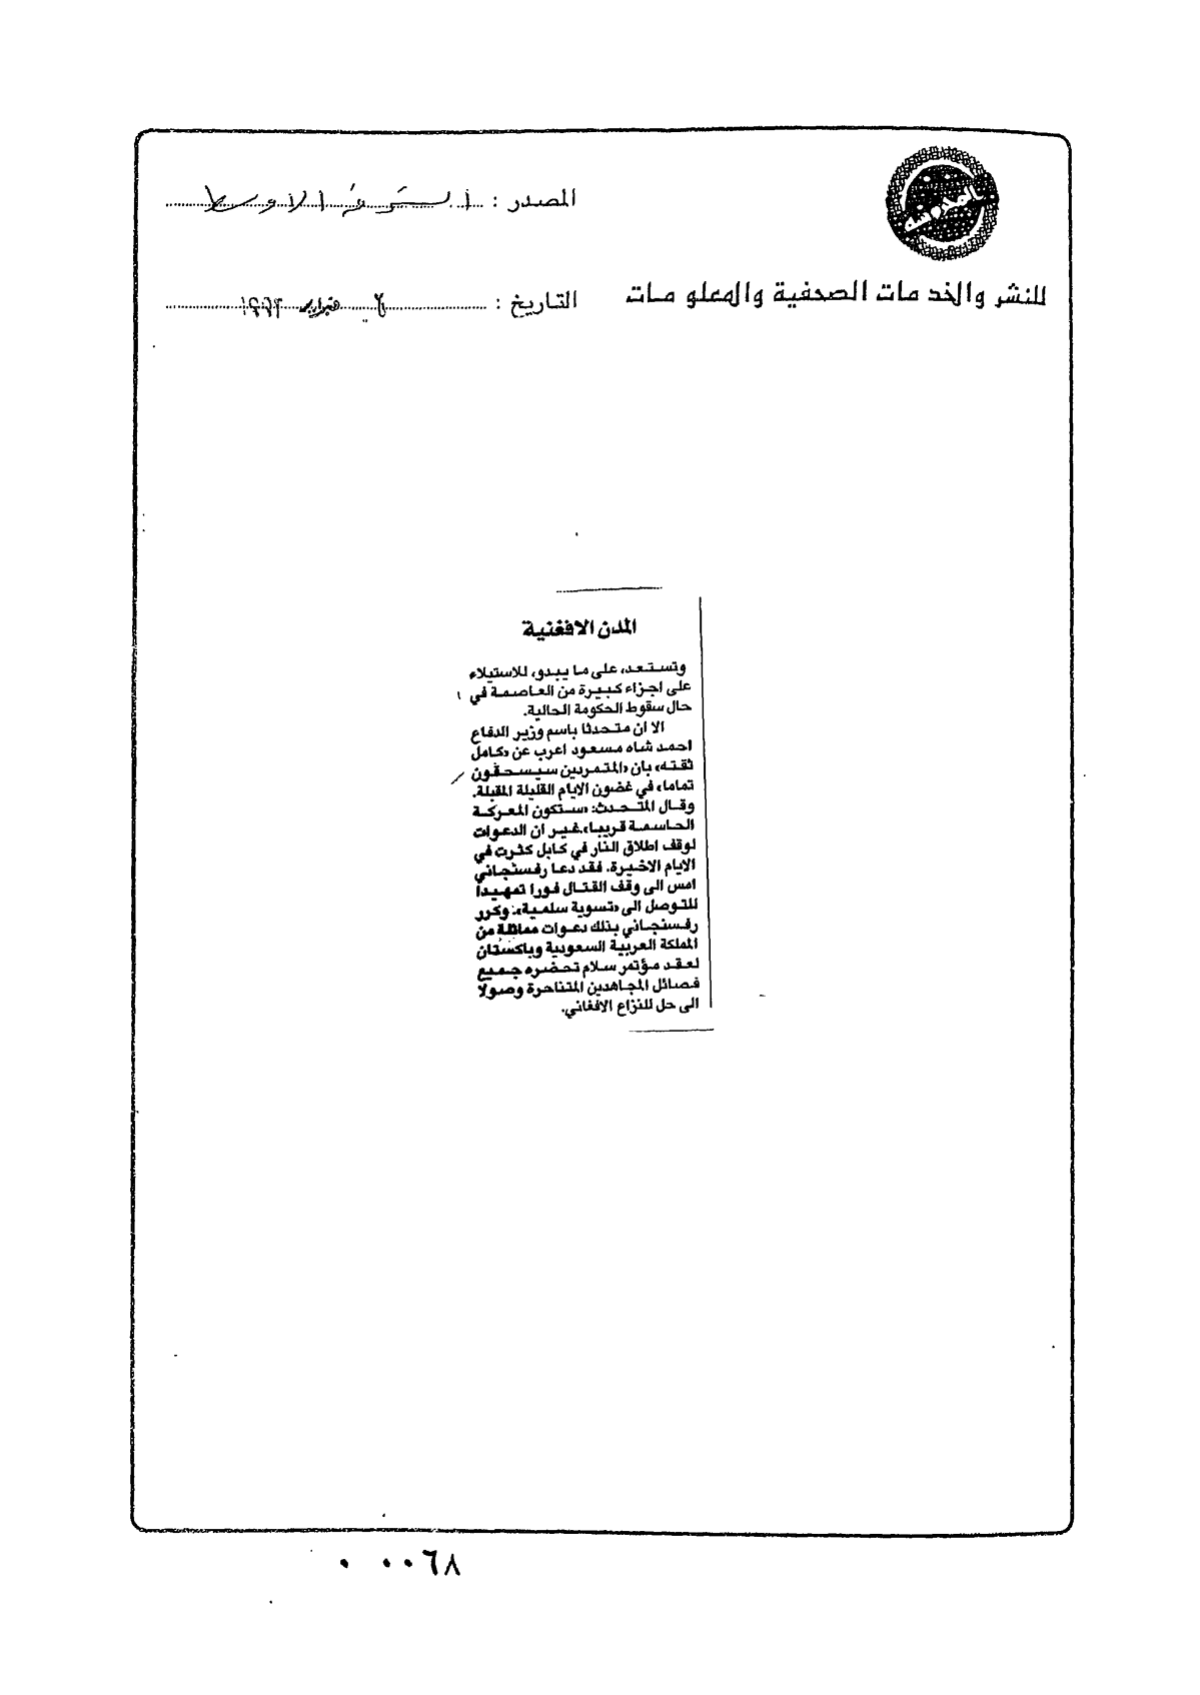 المصدر : الشرق الأوسط
للنشر والخدمات الصحفية والمعلومات
التاريخ : ٦ فبراير ١٩٩٣
المدن الافغنية
وتستعد، على ما يبدو، للاستيلاء
على اجزاء كبيرة من العاصمة في
حال سقوط الحكومة الحالية.
الا ان متحدثا باسم وزير الدفاع
احمد شاه مسعود اعرب عن «كامل
ثقته» بان «المتمردين سيسحقون
تماما» في غضون الايام القليلة المقبلة.
وقال المتحدث: «ستكون المعركة
الحاسمة قريبا».غير ان الدعوات
لوقف اطلاق النار في كابل كثرت في
الايام الاخيرة. فقد دعا رفسنجاني
امس الى وقف القتال فورا تمهيداً
للتوصل الى «تسوية سلمية». وكرر
رفسنجاني بذلك دعوات مماثلة من
المملكة العربية السعودية وباكستان
لعقد مؤتمر سلام تحضره جميع
فصائل المجاهدين المتناحرة وصولا
الى حل للنزاع الافغاني.
٠ ٠٠٦٨